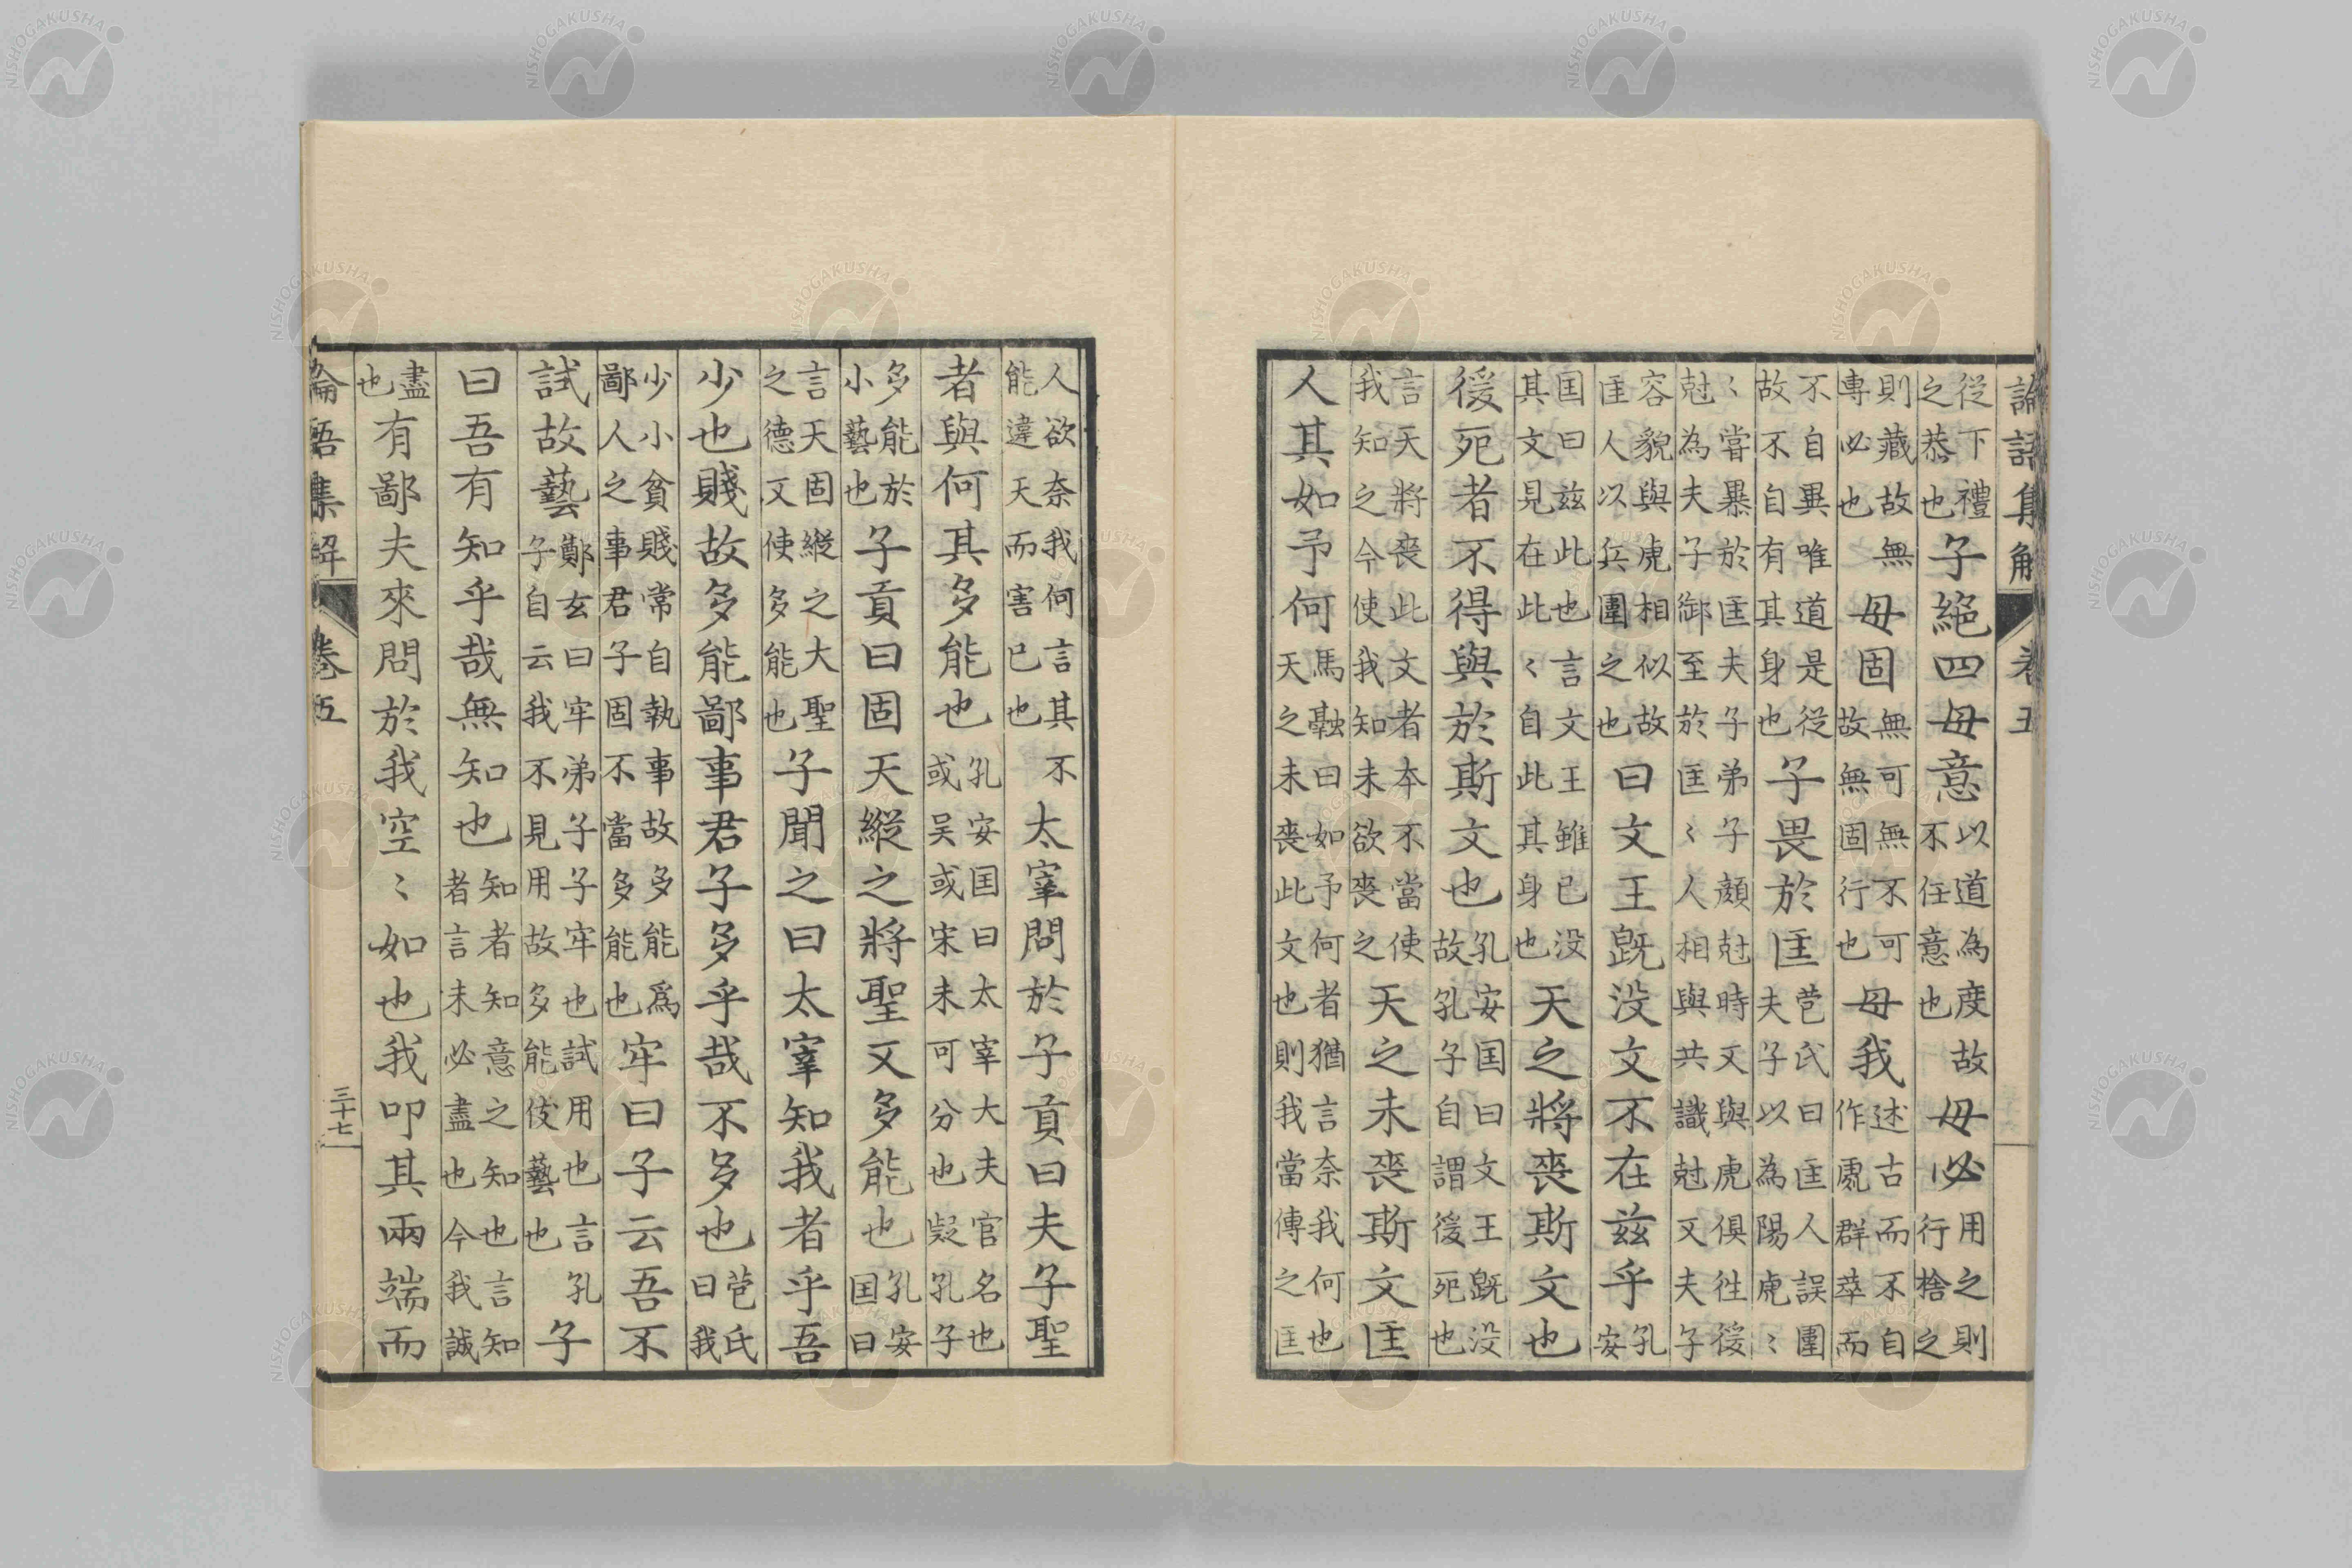 論語集解 卷五
從下禮之恭也子絕四毋意以道為度故不任意也毋必用之則行捨之
則藏故無專必也毋固無可無不可故無固行也毋我述古而不自作處群萃而
不自異唯道是從故不自有其身也子畏於匡苞氏曰匡人誤圍夫子以為陽虎〻
〻嘗暴於匡夫子弟子顏尅時又與虎俱徃後尅為夫子御至於匡〻人相與共識尅又夫子
容貌與虎相似故匡人以兵圍之也曰文王既没文不在兹乎孔安
国曰兹此也言文王雖已没其文見在此〻自此其身也天之將喪斯文也
後死者不得與於斯文也孔安国曰文王既没故孔子自謂後死也
言天將喪此文者本不當使我知之今使我知未欲喪之天之未喪斯文匡
人其如予何馬融曰如予何者猶言奈我何也天之未喪此文也則我當傳之匡
人欲奈我何言其不能違天而害已也太宰問於子貢曰夫子聖
者與何其多能也孔安国曰太宰大夫官名也或吴或宋未可分也疑孔子
多能於小藝也子貢曰固天縱之將聖又多能也孔安国曰
言天固縱之大聖之德又使多能也子聞之曰太宰知我者乎吾
少也賤故多能鄙事君子多乎哉不多也苞氏曰我
少小貧賤常自執事故多能爲鄙人之事君子固不當多能也牢曰子云吾不
試故藝鄭玄曰牢弟子子牢也試用也言孔子自云我不見用故多能伎藝也子
曰吾有知乎哉無知也知者知意之知也言知者言未必盡也今我誠
盡也有鄙夫來問於我空〻如也我叩其兩端而
論語集解 卷五 三十七
NISHOGAKUSHA